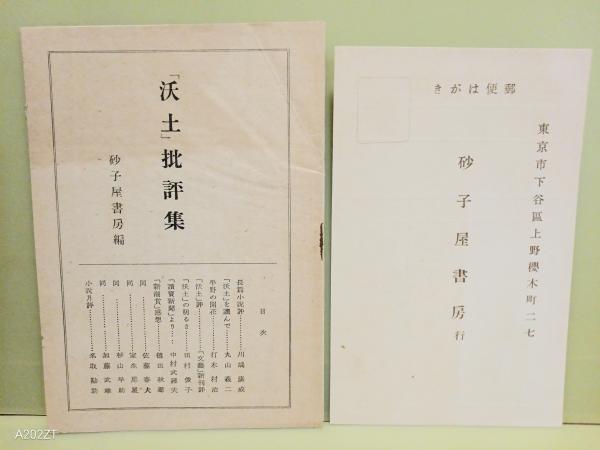 「沃土」批評集
砂子屋書房編
目次
長篇小説評………川端康成
「沃土」を讀んで……丸山義二
平野の開花………打木村治
「沃土」評………「文藝」新刊評
「沃土」の明るさ……田村俊子
「讀賣新聞」より……中村武羅夫
「新潮賞」感想………徳田秋聲
同………佐藤春夫
同………室生犀星
同………杉山平助
同………加藤武雄
小説月評………名取勘助
郵便はがき
東京市下谷區上野櫻木町二七
砂子屋書房 行
A202ZT